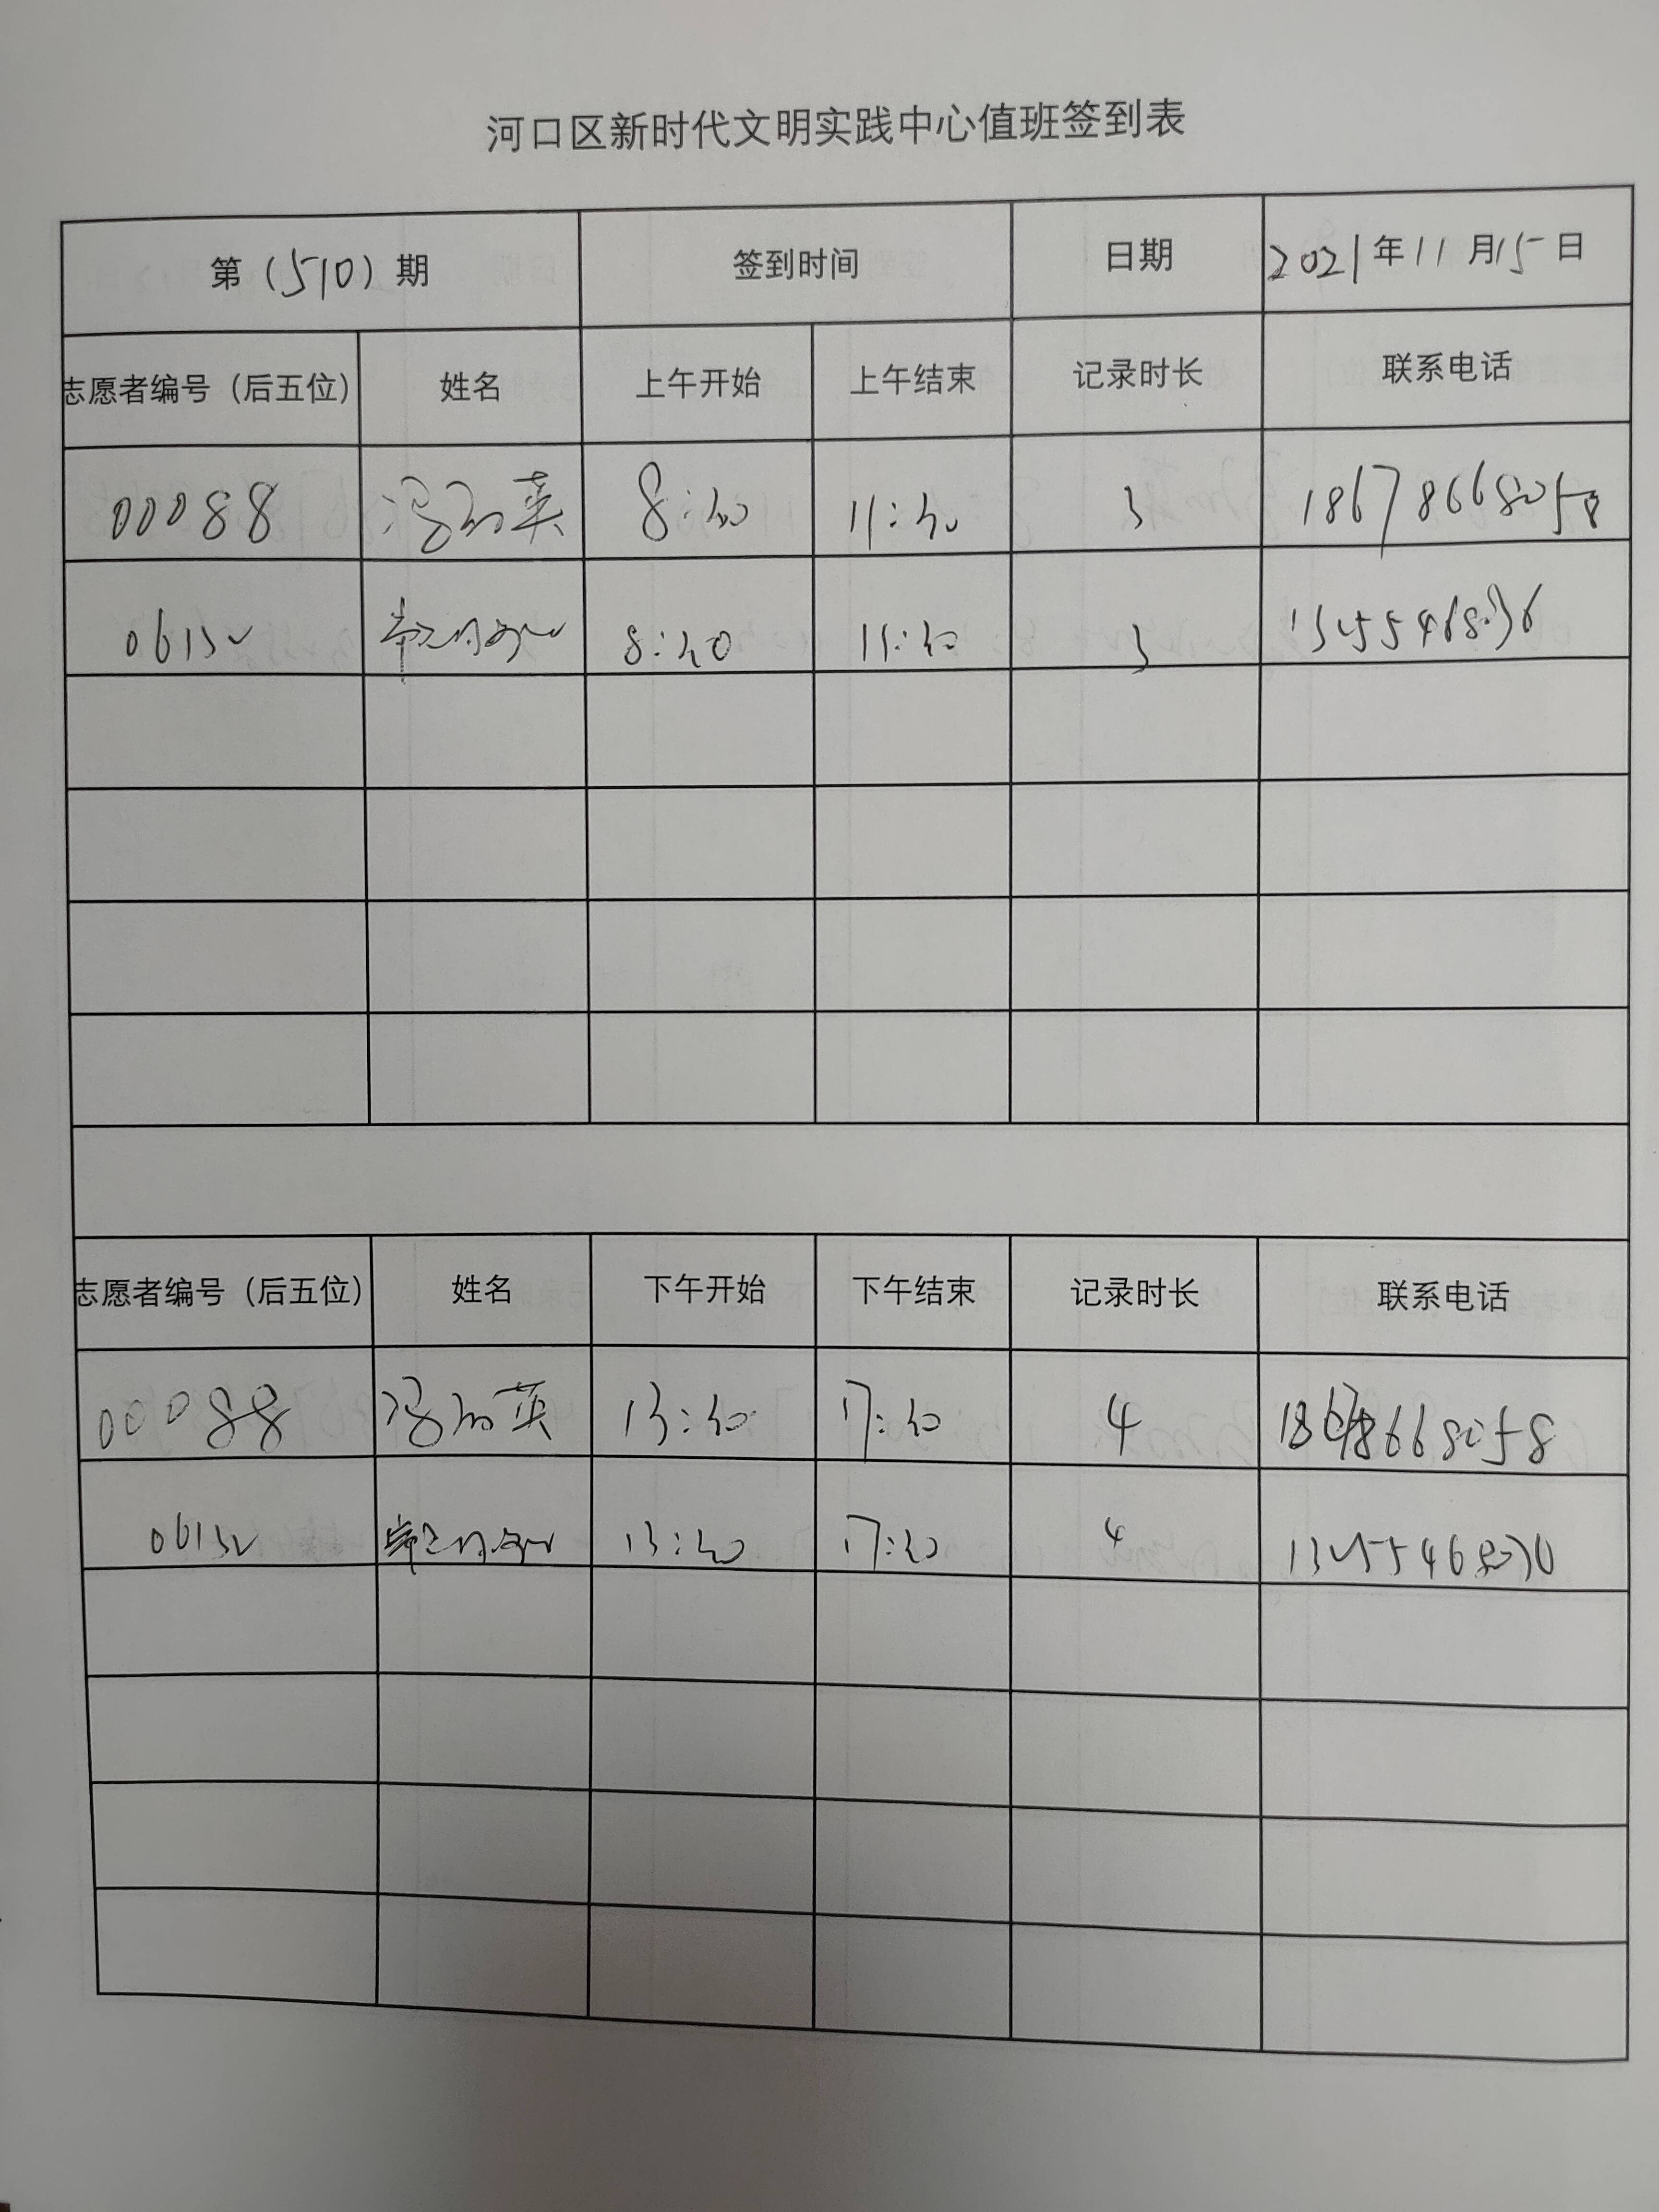 河口区新时代文明实践中心值班签到表
第（510）期 签到时间 日期 2021年11月15日
志愿者编号（后五位） 姓名 上午开始 上午结束 记录时长 联系电话
00088 冯 英 8:30 11:30 3 18678668058
06132 8:30 11:30 3
志愿者编号（后五位） 姓名 下午开始 下午结束 记录时长 联系电话
00088 冯 英 13:30 17:30 4 18678668058
06132 13:30 17:30 4